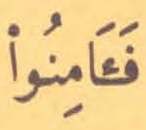 فَـَٔامِنُوا۟